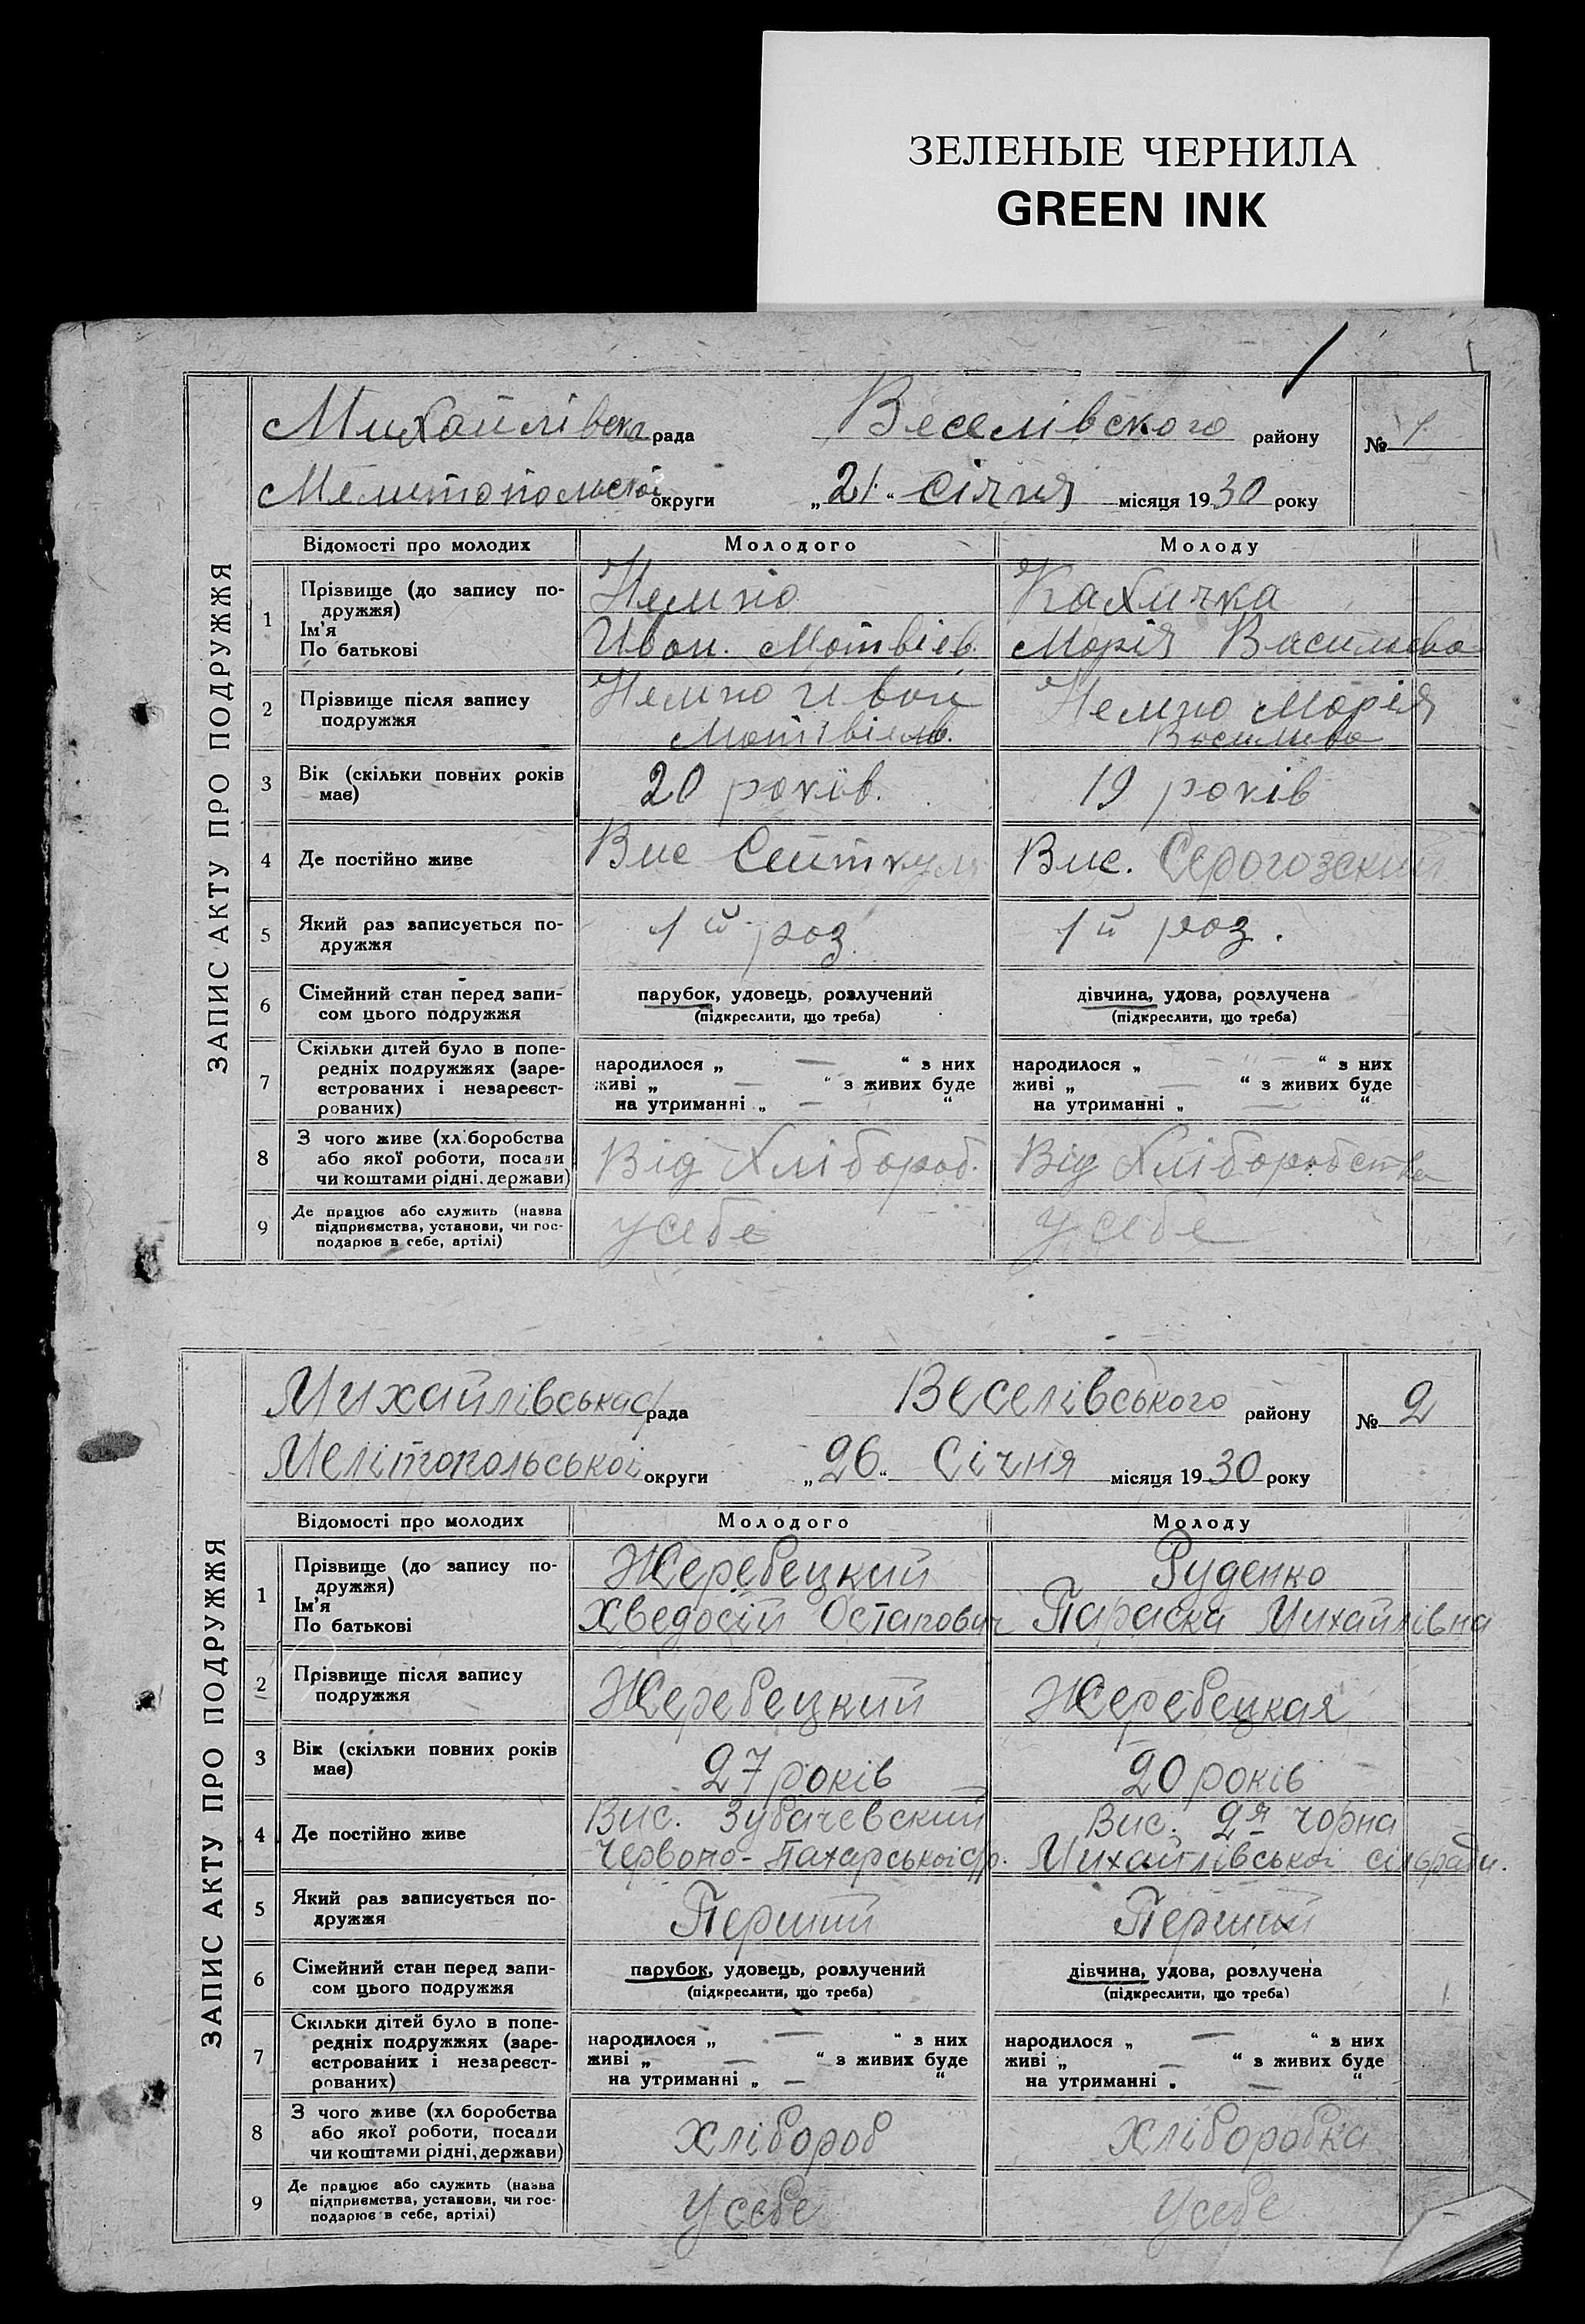 ЗЕЛЕНЫЕ ЧЕРНИЛА
GREEN INK
ЗАПИС АКТУ ПРО ПОДРУЖЖЯ
Михайлівска рада Веселівского району № 1
Мелитопольскої округи „21“ січня місяця 1930 року
Відомості про молодих Молодого Молоду
1 Прізвище (до запису по-
дружжя)
Ім'я
По батькові
Иван. Мотвіев. Марія Василева
2 Прізвище після запису
подружжя
Иван Марія
3 Вік (скільки повних років
має)
20 років. 19 років
4 Де постійно живе Вис Вис. Серогозский
5 Який раз записується по-
дружжя
1й роз 1й роз.
6 Сімейний стан перед запи-
сом цього подружжя
парубок, удовець, розлучений дівчина, удова, розлучена
(підкреслити, що треба) (підкреслити, що треба)
7 Скільки дітей було в попе-
редніх подружжях (заре-
єстрованих і незареєст-
рованих)
народилося „ — “ з них народилося „ — “ з них
живі „ — “ з живих буде живі „ — “ з живих буде
на утриманні „ — “ на утриманні „ — “
8 З чого живе (хліборобства
або якої роботи, посади
чи коштами рідні, держави)
Від Хлібороб. Від Хліборобства
9 Де працює або служить (назва
підприємства, установи, чи гос-
подарює в себе, артілі)
у себе у себе
ЗАПИС АКТУ ПРО ПОДРУЖЖЯ
Михайлівська с/рада Веселівського району № 2
Мелітопольської округи „26“ Січня місяця 1930 року
Відомості про молодих Молодого Молоду
1 Прізвище (до запису по-
дружжя)
Ім'я
По батькові
Жеребецкий Руденко
Хведосій Остапович Параска Михайлівна
2 Прізвище після запису
подружжя
Жеребецкий Жеребецкая
3 Вік (скільки повних років
має)
27 років 20 років
4 Де постійно живе
Вис. Зубачевский Вис. 2я чорна
Червоно-Пахарської с/р. Михайлівської сільради.
5 Який раз записується по-
дружжя
Перший Перший
6 Сімейний стан перед запи-
сом цього подружжя
парубок, удовець, розлучений дівчина, удова, розлучена
(підкреслити, що треба) (підкреслити, що треба)
7 Скільки дітей було в попе-
редніх подружжях (заре-
єстрованих і незареєст-
рованих)
народилося „ — “ з них народилося „ — “ з них
живі „ — “ з живих буде живі „ — “ з живих буде
на утриманні „ — “ на утриманні „ — “
8 З чого живе (хліборобства
або якої роботи, посади
чи коштами рідні, держави)
Хлібороб Хліборобка
9 Де працює або служить (назва
підприємства, установи, чи гос-
подарює в себе, артілі)
У себе У себе